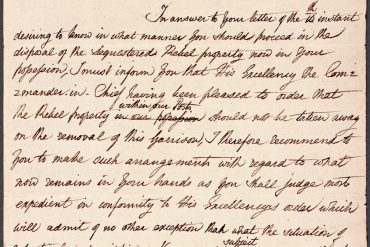 In answer to Your letter of the 7th instant
desiring to know in what manner You should proceed in the
disposal of the Sequestered Rebel property now in Your
possession, I must inform You that His Excellency the Com=
=mander.in.Chief having been pleased to order that
the Rebel Property in our possession within our Posts should not be taken away
on the removal of this Garrison, I therefore recommend to
You to make such arrangements with regard to what
now remains in Your hands as You shall judge most
expedient in conformity to His Excellencys order which
will admit of no other exception than what the situation of
subject